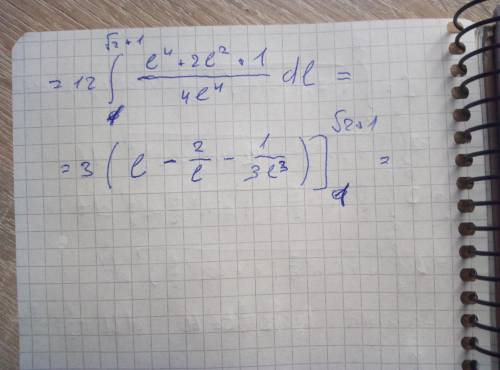 = 12 ∫_1^{√2+1} (l⁴ + 2l² + 1)/(4l⁴) dl =
= 3 ( l − 2/l − 1/(3l³) ) ]_1^{√2+1} =